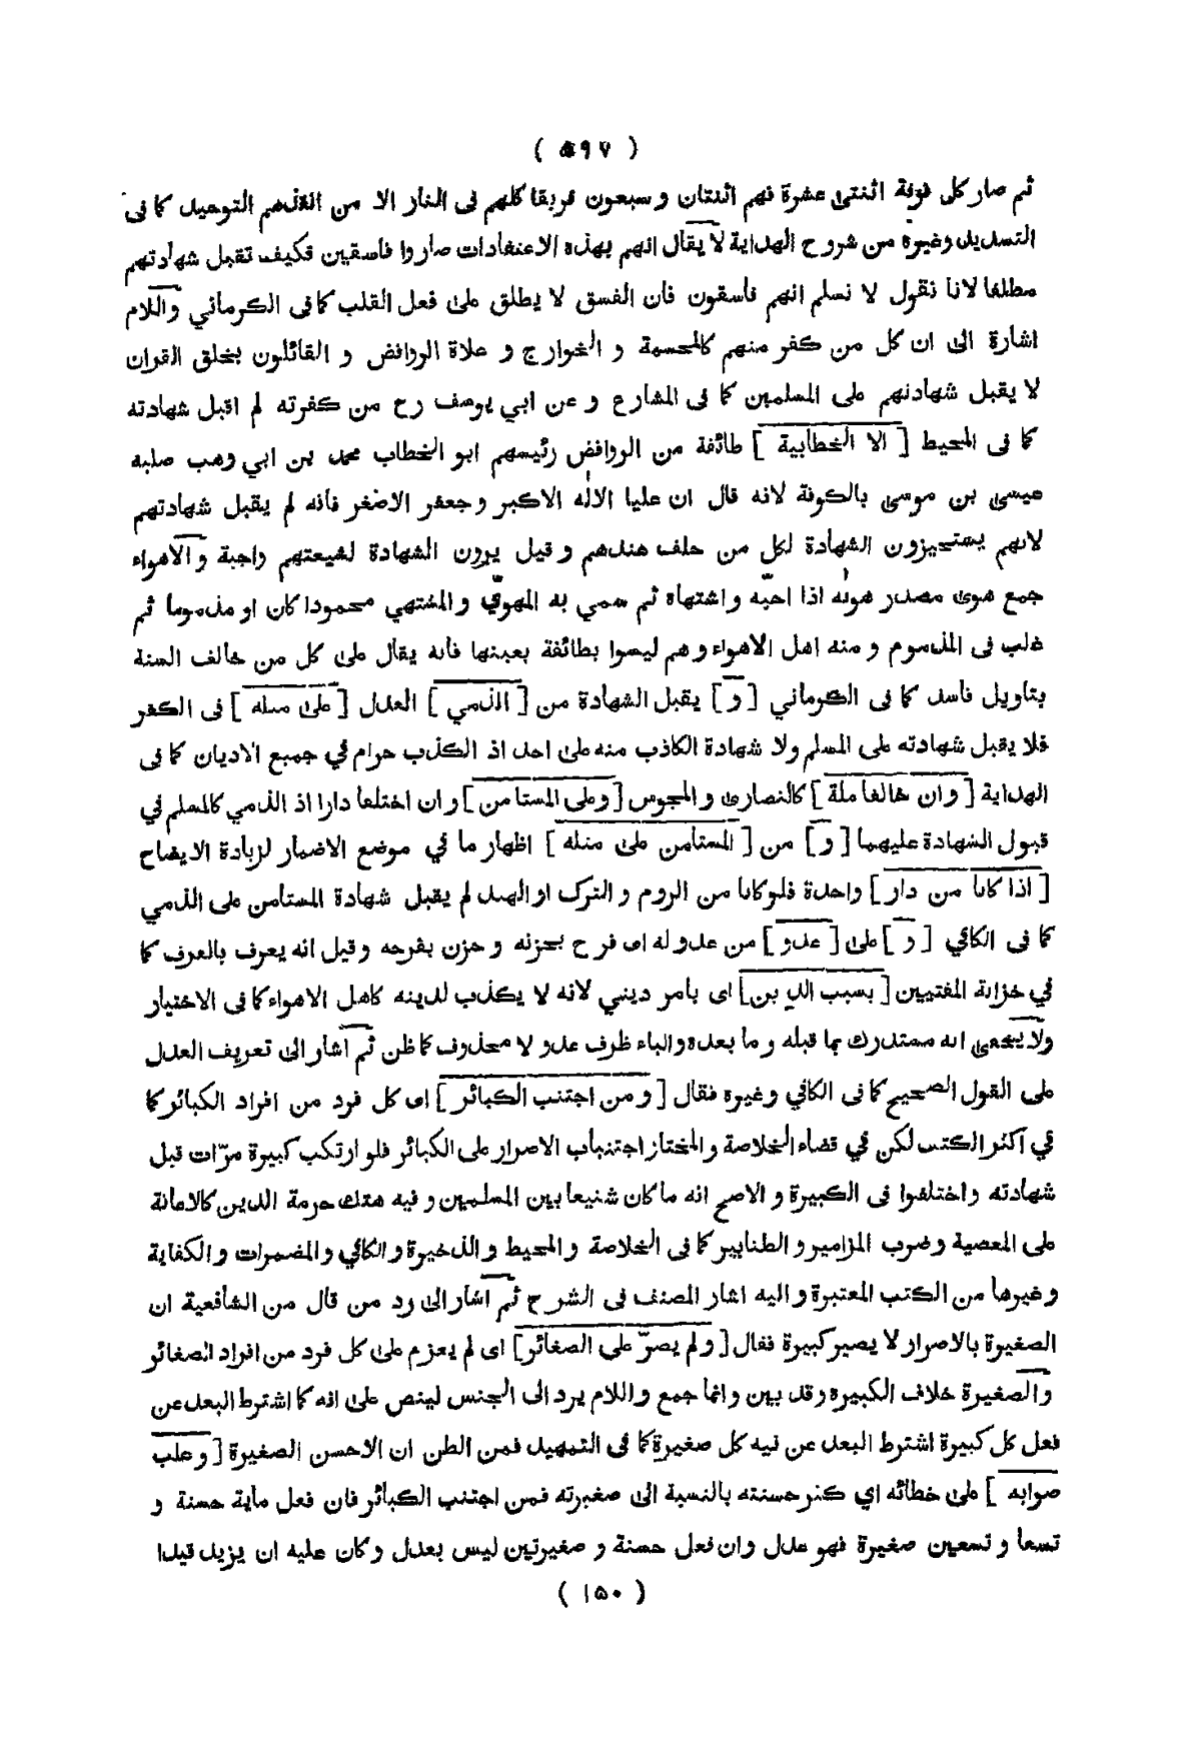 ( ۵۹۷ )
ثم صار كل فرقة اثنتى عشرة فهم اثنتان و سبعون فريقا كلهم فى النار الا من انقذهم التوحيد كما فى
التسديد وغيره من شروح الهداية لا يقال انهم بهذه الاعتقادات صاروا فاسقين فكيف تقبل شهادتهم
مطلقا لانا نقول لا نسلم انهم فاسقون فان الفسق لا يطلق على فعل القلب كما فى الكرماني واللام
اشارة الى ان كل من كفر منهم كالمجسمة و الخوارج و غلاة الروافض و القائلون بخلق القران
لا يقبل شهادتهم على المسلمين كما فى المشارع و عن ابي يوسف رح من كفرته لم اقبل شهادته
كما فى المحيط [ الا الخطابية ] طائفة من الروافض رئيسهم ابو الخطاب محمد بن ابي وهب صلبه
عيسى بن موسى بالكوفة لانه قال ان عليا الاله الاكبر و جعفر الاصغر فانه لم يقبل شهادتهم
لانهم يستجيزون الشهادة لكل من حلف عندهم و قيل يرون الشهادة لشيعتهم واجبة والاهواء
جمع هوى مصدر هوئه اذا احبّه و اشتهاه ثم سمي به المهويّ و المشتهي محمودا كان او مذموما ثم
غلب فى المذموم و منه اهل الاهواء و هم ليسوا بطائفة بعينها فانه يقال على كل من خالف السنة
بتاويل فاسد كما فى الكرماني [ و ] يقبل الشهادة من [ الذمي ] العدل [ على مثله ] فى الكفر
فلا يقبل شهادته على المسلم ولا شهادة الكاذب منه على احد اذ الكذب حرام في جميع الاديان كما فى
الهداية [ وان خالفا ملة ] كالنصارى و المجوس [ وعلى المستامن ] و ان اختلفا دارا اذ الذمي كالمسلم في
قبول الشهادة عليهما [ و ] من [ المستامن على مثله ] اظهار ما في موضع الاضمار لزيادة الايضاح
[ اذا كانا من دار ] واحدة فلو كانا من الروم و الترك او الهند لم يقبل شهادة المستأمن على الذمي
كما فى الكافي [ و ] على [ عدو ] من عدو له اى فرح بحزنه و حزن بفرحه و قيل انه يعرف بالعرف كما
في خزانة المفتيين [ بسبب الدين ] اى بامر ديني لانه لا يكذب لدينه كاهل الاهواء كما فى الاختيار
ولا يخفى انه مستدرك بما قبله و ما بعده والباء ظرف عدو لا محذوف كما ظن ثم اشار الى تعريف العدل
على القول الصحيح كما فى الكافي وغيره فقال [ و من اجتنب الكبائر ] اى كل فرد من افراد الكبائر كما
في اكثر الكتب لكن في قضاء الخلاصة والمختار اجتنباب الاصرار على الكبائر فلو ارتكب كبيرة مرّات قبل
شهادته و اختلفوا فى الكبيرة و الاصح انه ما كان شنيعا بين المسلمين و فيه هتك حرمة الدين كالاعانة
على المعصية و ضرب المزامير و الطنابير كما فى الخلاصة و المحيط و الذخيرة و الكافي و المضمرات و الكفاية
وغيرها من الكتب المعتبرة و اليه اشار المصنف فى الشرح ثم اشار الى رد من قال من الشافعية ان
الصغيرة بالاصرار لا يصير كبيرة فقال [ و لم يصرّ على الصغائر ] اى لم يعزم على كل فرد من افراد الصغائر
والصغيرة خلاف الكبيرة و قد بين و انما جمع و اللام يرد الى الجنس لينص على انه كما اشترط البعد عن
فعل كل كبيرة اشترط البعد عن نيه كل صغيرة كما فى التمهيد فمن الظن ان الاحسن الصغيرة [ و غلب
صوابه ] على خطائه اي كثر حسنته بالنسبة الى صغيرته فمن اجتنب الكبائر فان فعل ماية حسنة و
تسعا و تسعين صغيرة فهو عدل و ان فعل حسنة و صغيرتين ليس بعدل و كان عليه ان يزيد قيدا
( ۱۵۰ )